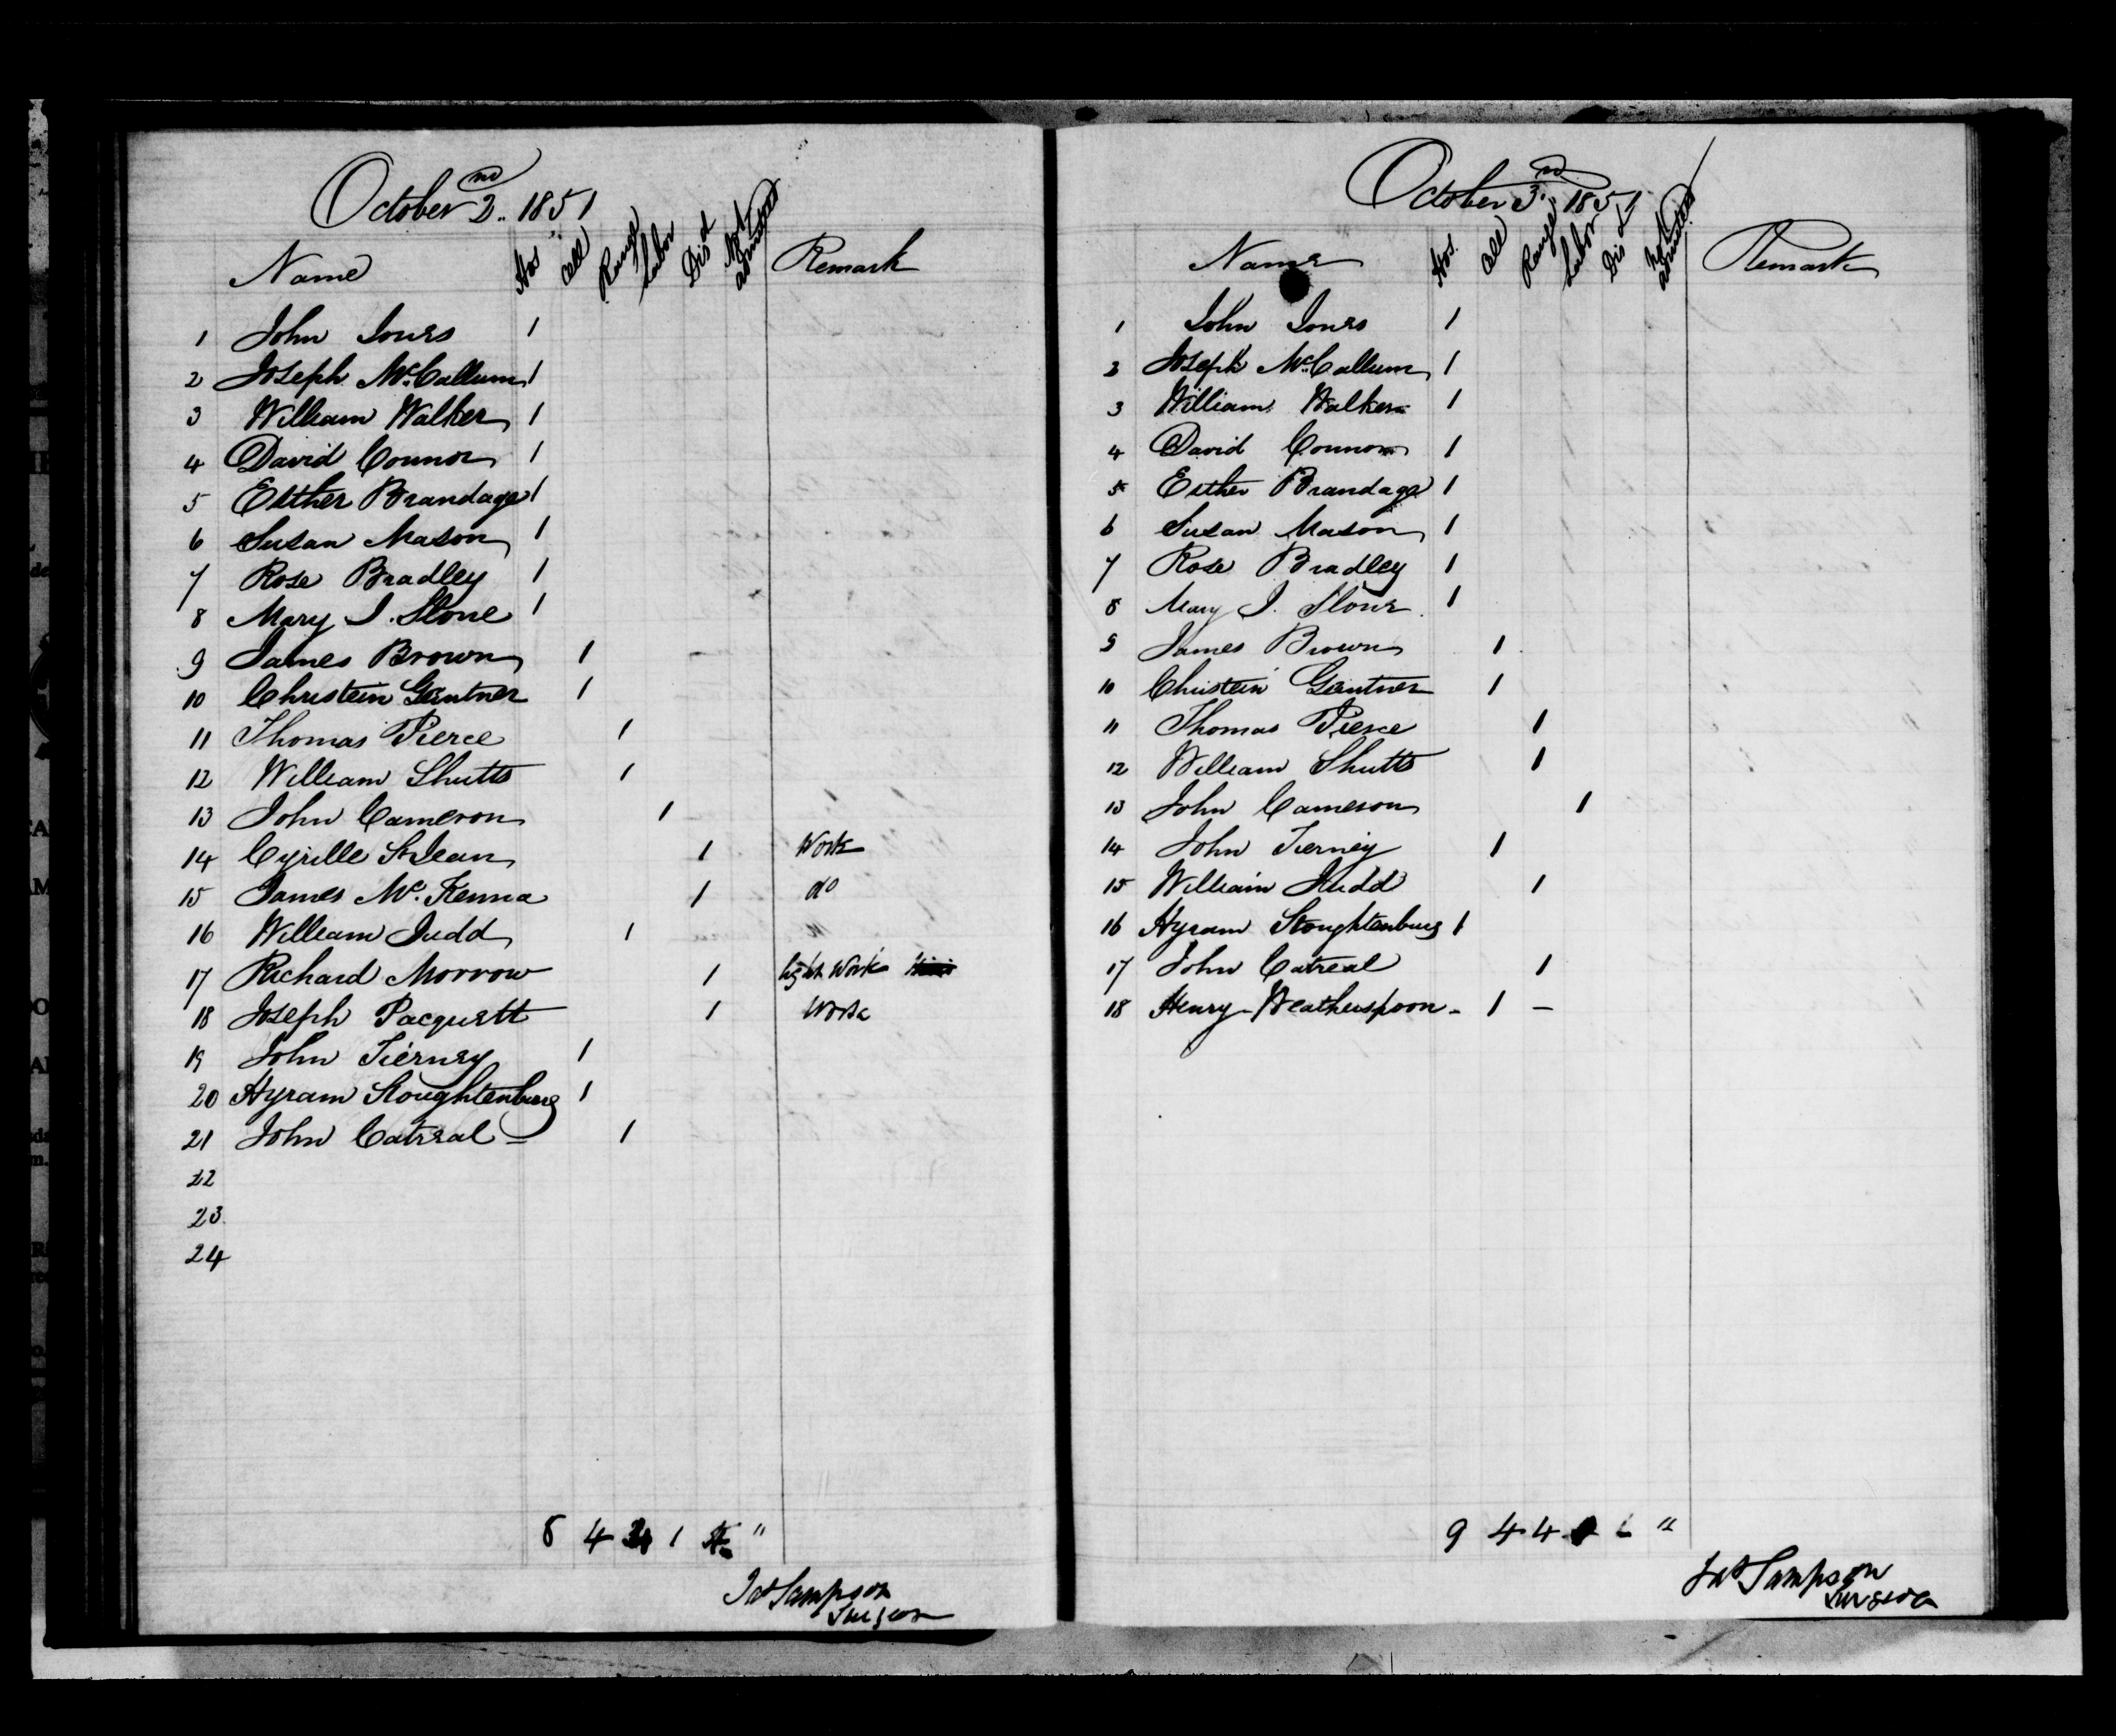 October 2nd. 1851
Name Hos Cell Range Labor Disd Not admitted Remark
1 John Jones 1
2 Joseph McCallum 1
3 William Walker 1
4 David Connor 1
5 Esther Brandage 1
6 Susan Mason 1
7 Rose Bradley 1
8 Mary J. Slone 1
9 James Brown 1
10 Christein Gantner 1
11 Thomas Pierce 1
12 William Shutts 1
13 John Cameron 1
14 Cyrille St Jean 1 Work
15 James Mc. Kenna 1 do
16 William Judd 1
17 Richard Morrow 1 light Work
18 Joseph Pacquett 1 Work
19 John Tierney 1
20 Hyram Stoughtenburg 1
21 John Catreal 1
22
23
24
8 4 4 1 4 "
Jas Sampson
Surgeon
October 3rd. 1851
Name Hos. Cell Range Labor Disd Not admitted Remark
1 John Jones 1
2 Joseph McCallum 1
3 William Walker 1
4 David Connor 1
5 Esther Brandage 1
6 Susan Mason 1
7 Rose Bradley 1
8 Mary J. Slone 1
9 James Brown 1
10 Christein Gantner 1
11 Thomas Pierce 1
12 William Shutts 1
13 John Cameron 1
14 John Tierney 1
15 William Judd 1
16 Hyram Stoughtenburg 1
17 John Catreal 1
18 Henry Weatherspoon - 1 -
9 4 4 "
Jas Sampson
Surgeon